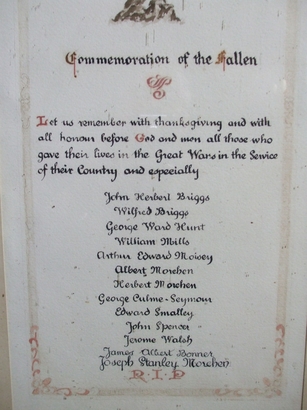 Commemoration of the Fallen
Let us remember with thanksgiving and with
all honour before God and men all those who
gave their lives in the Great Wars in the Service
of their Country and especially
John Herbert Briggs
Wilfred Briggs
George Ward Hunt
William Mills
Arthur Edward Moisey
Albert Morehen
Herbert Morehen
George Culme-Seymour
Edward Smalley
John Spencer
Jerome Walsh
James Albert Bonner
Joseph Stanley Morehen
R.I.P